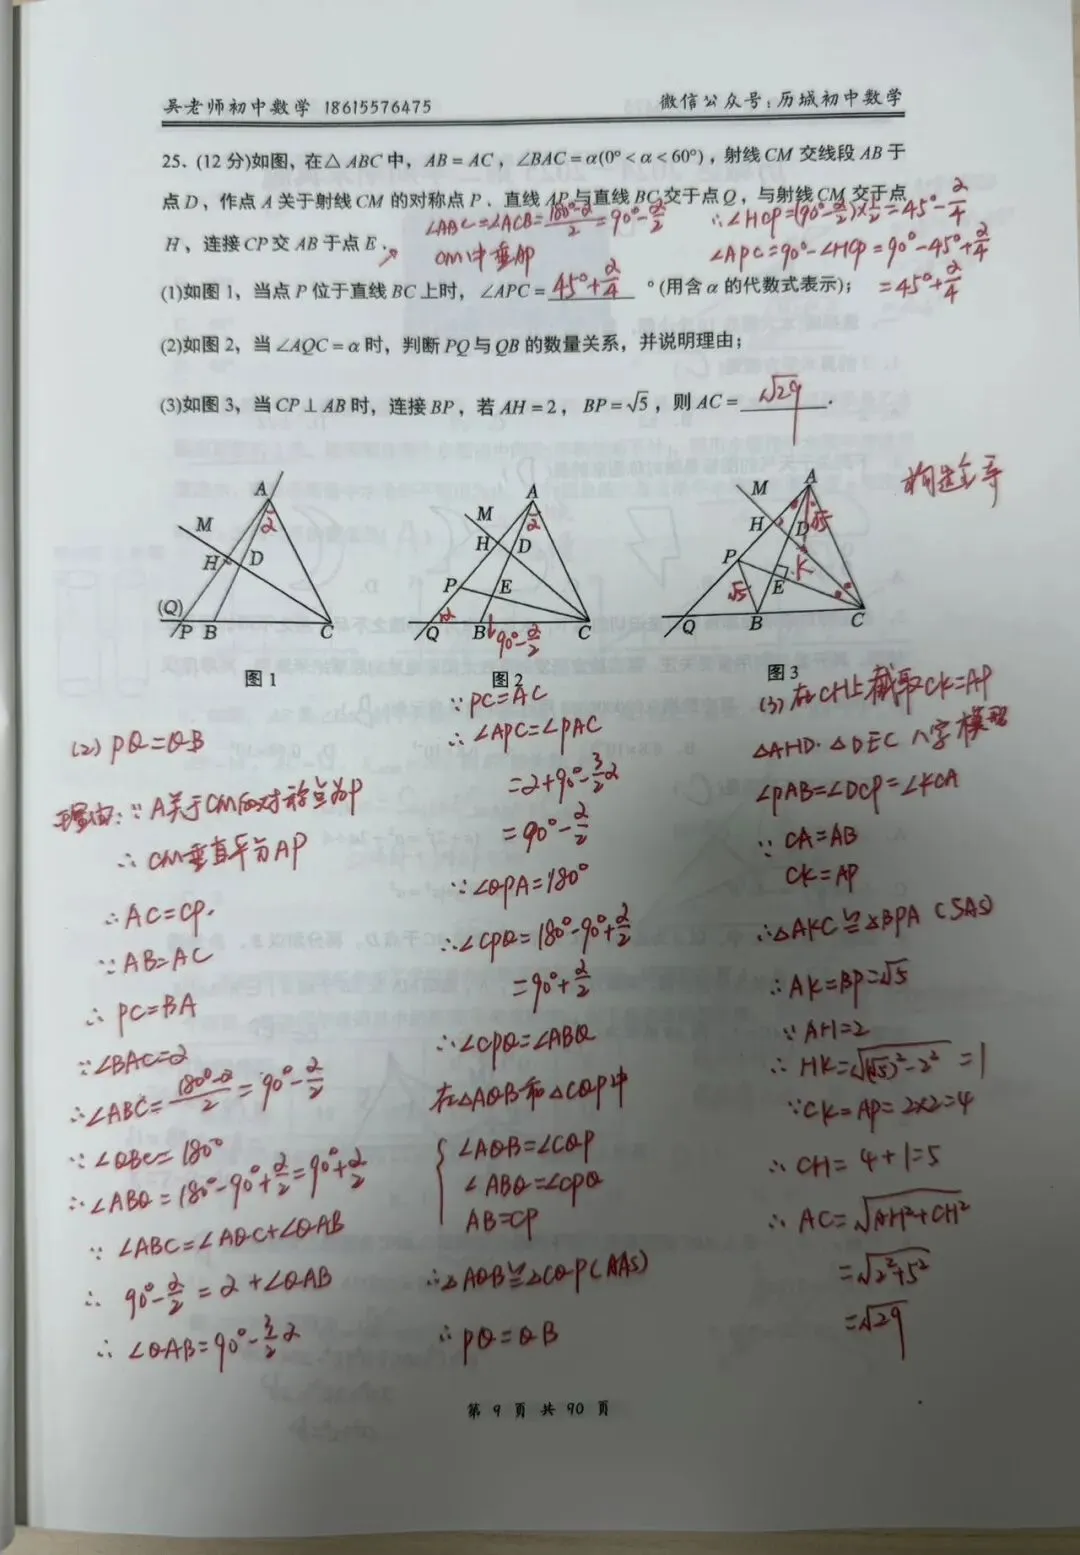 吴老师初中数学 18615576475
微信公众号:历城初中数学
25. (12分)如图, 在△ABC中, AB=AC, ∠BAC=α(0°<α<60°), 射线CM交线段AB于
点D, 作点A关于射线CM的对称点P. 直线AP与直线BC交于点Q, 与射线CM交于点
H, 连接CP交AB于点E.
∠ABC=∠ACB=(180°-α)/2=90°-α/2
CM中垂AP
∴∠HCP=(90°-α/2)×1/2=45°-α/4
∠APC=90°-∠HCP=90°-45°+α/4
=45°+α/4
(1)如图1, 当点P位于直线BC上时, ∠APC= 45°+α/4 °(用含α的代数式表示);
(2)如图2, 当∠AQC=α时, 判断PQ与QB的数量关系, 并说明理由;
(3)如图3, 当CP⊥AB时, 连接BP, 若AH=2, BP=√5, 则AC= √29 .
构造全等
A
α
M
H
D
(Q)
P
B
C
图1
A
α
M
H
D
P
E
α
Q
B
90°-α/2
C
图2
A
M
H
D
√5
P
K
√5
E
Q
B
C
图3
(2) PQ=QB
理由:∵A关于CM的对称点为P
∴CM垂直平分AP
∴AC=CP.
∵AB=AC
∴PC=BA
∵∠BAC=α
∴∠ABC=(180°-α)/2=90°-α/2
∵∠QBC=180°
∴∠ABQ=180°-90°+α/2=90°+α/2
∵∠ABC=∠AQC+∠QAB
∴90°-α/2=α+∠QAB
∴∠QAB=90°-3/2α
∵PC=AC
∴∠APC=∠PAC
=α+90°-3/2α
=90°-α/2
∵∠QPA=180°
∴∠CPQ=180°-90°+α/2
=90°+α/2
∴∠CPQ=∠ABQ
在△AQB和△CQP中
∠AQB=∠CQP
∠ABQ=∠CPQ
AB=CP
∴△AQB≌△CQP(AAS)
∴PQ=QB
(3)在CH上截取CK=AP
△AHD·△DEC八字模型
∠PAB=∠DCP=∠KCA
∵CA=AB
CK=AP
∴△AKC≌△BPA(SAS)
∴AK=BP=√5
∵AH=2
∴HK=√((√5)²-2²)=1
∵CK=AP=2×2=4
∴CH=4+1=5
∴AC=√(AH²+CH²)
=√(2²+5²)
=√29
第9页共90页